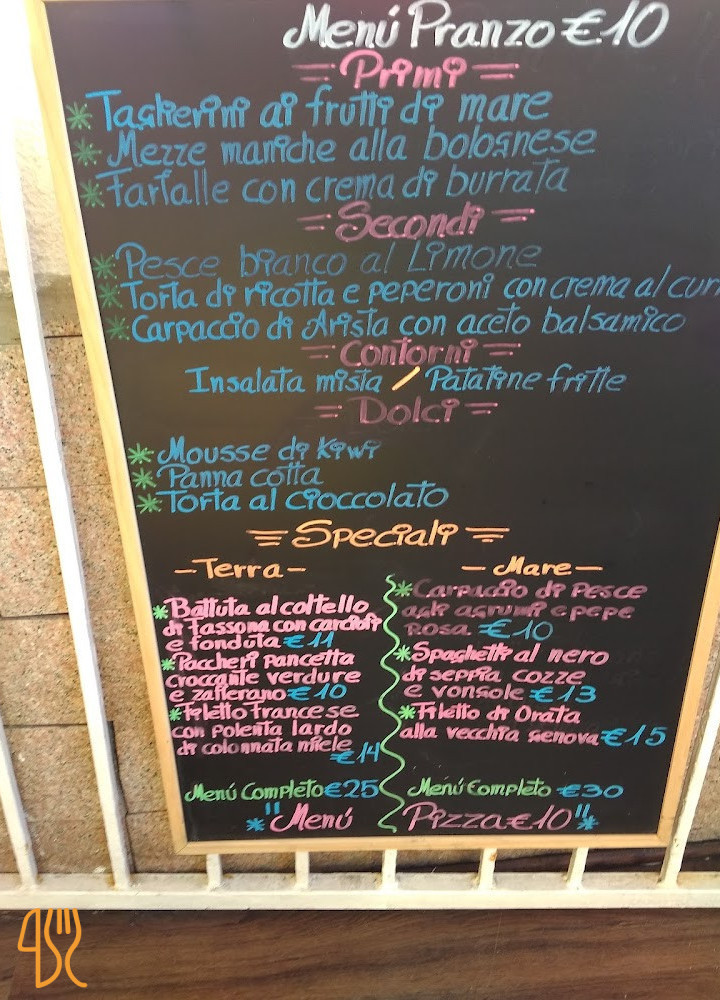 Menú Pranzo €10
= Primi =
* Taglierini ai frutti di mare
* Mezze maniche alla bolognese
* Farfalle con crema di burrata
= Secondi =
* Pesce bianco al Limone
* Torta di ricotta e peperoni con crema al cur
* Carpaccio di Arista con aceto balsamico
= Contorni =
Insalata mista / Patatine fritte
= Dolci =
* Mousse di kiwi
* Panna cotta
* Torta al cioccolato
= Speciali =
- Terra -
* Battuta al coltello
di fassona con carciofi
e fonduta €11
* Paccheri pancetta
croccante verdure
e zafferano €10
* Filetto francese
con polenta lardo
di colonnata miele
€14
Menú Completo €25
- Mare -
* Carpaccio di Pesce
agli agrumi e pepe
rosa €10
* Spaghetti al nero
di seppia cozze
e vongole €13
* Filetto di Orata
alla vecchia genova €15
Menú Completo €30
* "Menú Pizza €10" *